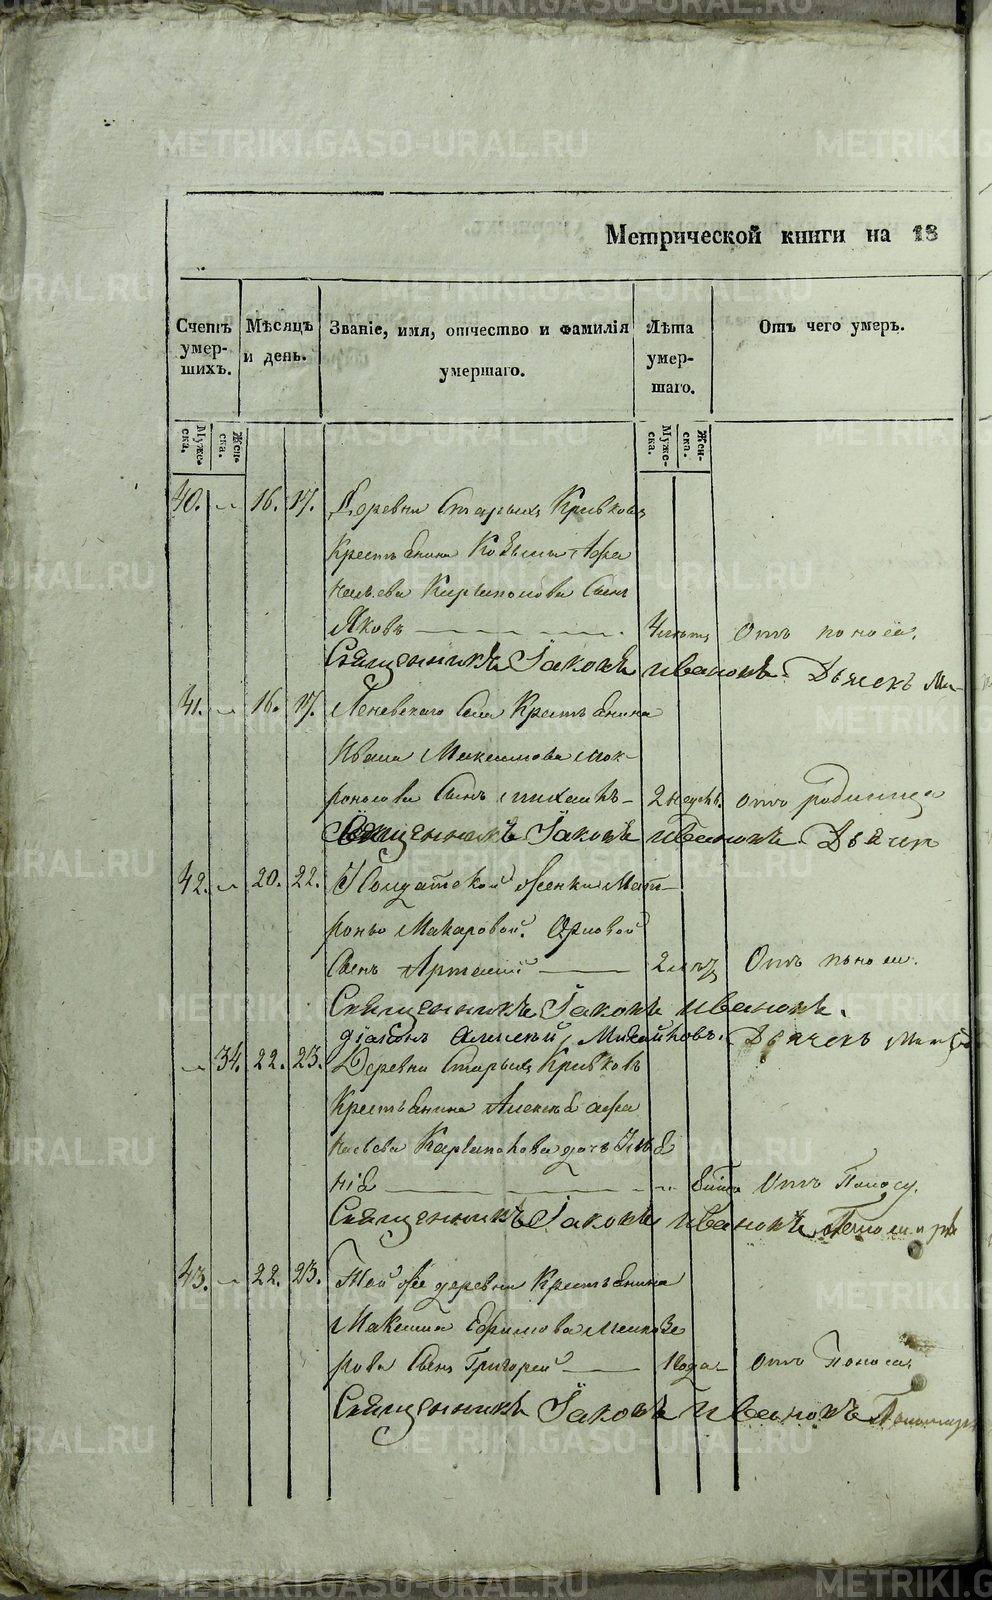 METRIKI.GASO-URAL.RU
Метрической книги на 18
Счетъ умершихъ.
Мѣсяцъ и день.
Званіе, имя, отчество и фамилія умершаго.
Лѣта умершаго.
Отъ чего умеръ.
Мужеска.
Женска.
Мужеска.
Женска.
40. „ 16. 17. Деревни Старыхъ Кривковъ
Крестьянина Козьмы Афа
насьева Сынъ
Яковъ 4 Отъ поноса.
Священникъ Іаковъ Ивановъ. Дьячекъ Ми-
41. „ 16. 17. Леневскаго Села Крестьянина
Ивана Максимова Мок-
роносова Сынъ Михаилъ 2 недѣль. отъ родимца
Священникъ Іаковъ Ивановъ Дьячек
42. „ 20. 22. Солдатской Женки Мат-
роны Макаровой Орловой
Сынъ Артемій 2 Отъ поноса.
Священникъ Іаковъ Ивановъ.
діаконъ Алексей Михайловъ. Дьячекъ
„ 34. 22. 23. Деревни Старыхъ Кривковъ
Крестьянина Алексѣя Афа
насьева дочь
нія Отъ Поносу.
Священникъ Іаковъ Ивановъ Пономарь
43. „ 22. 23. Той же деревни Крестьянина
Максима Ефимова
рова Сынъ Григорей 1 года отъ Поноса
Священникъ Іаковъ Ивановъ Пономарь